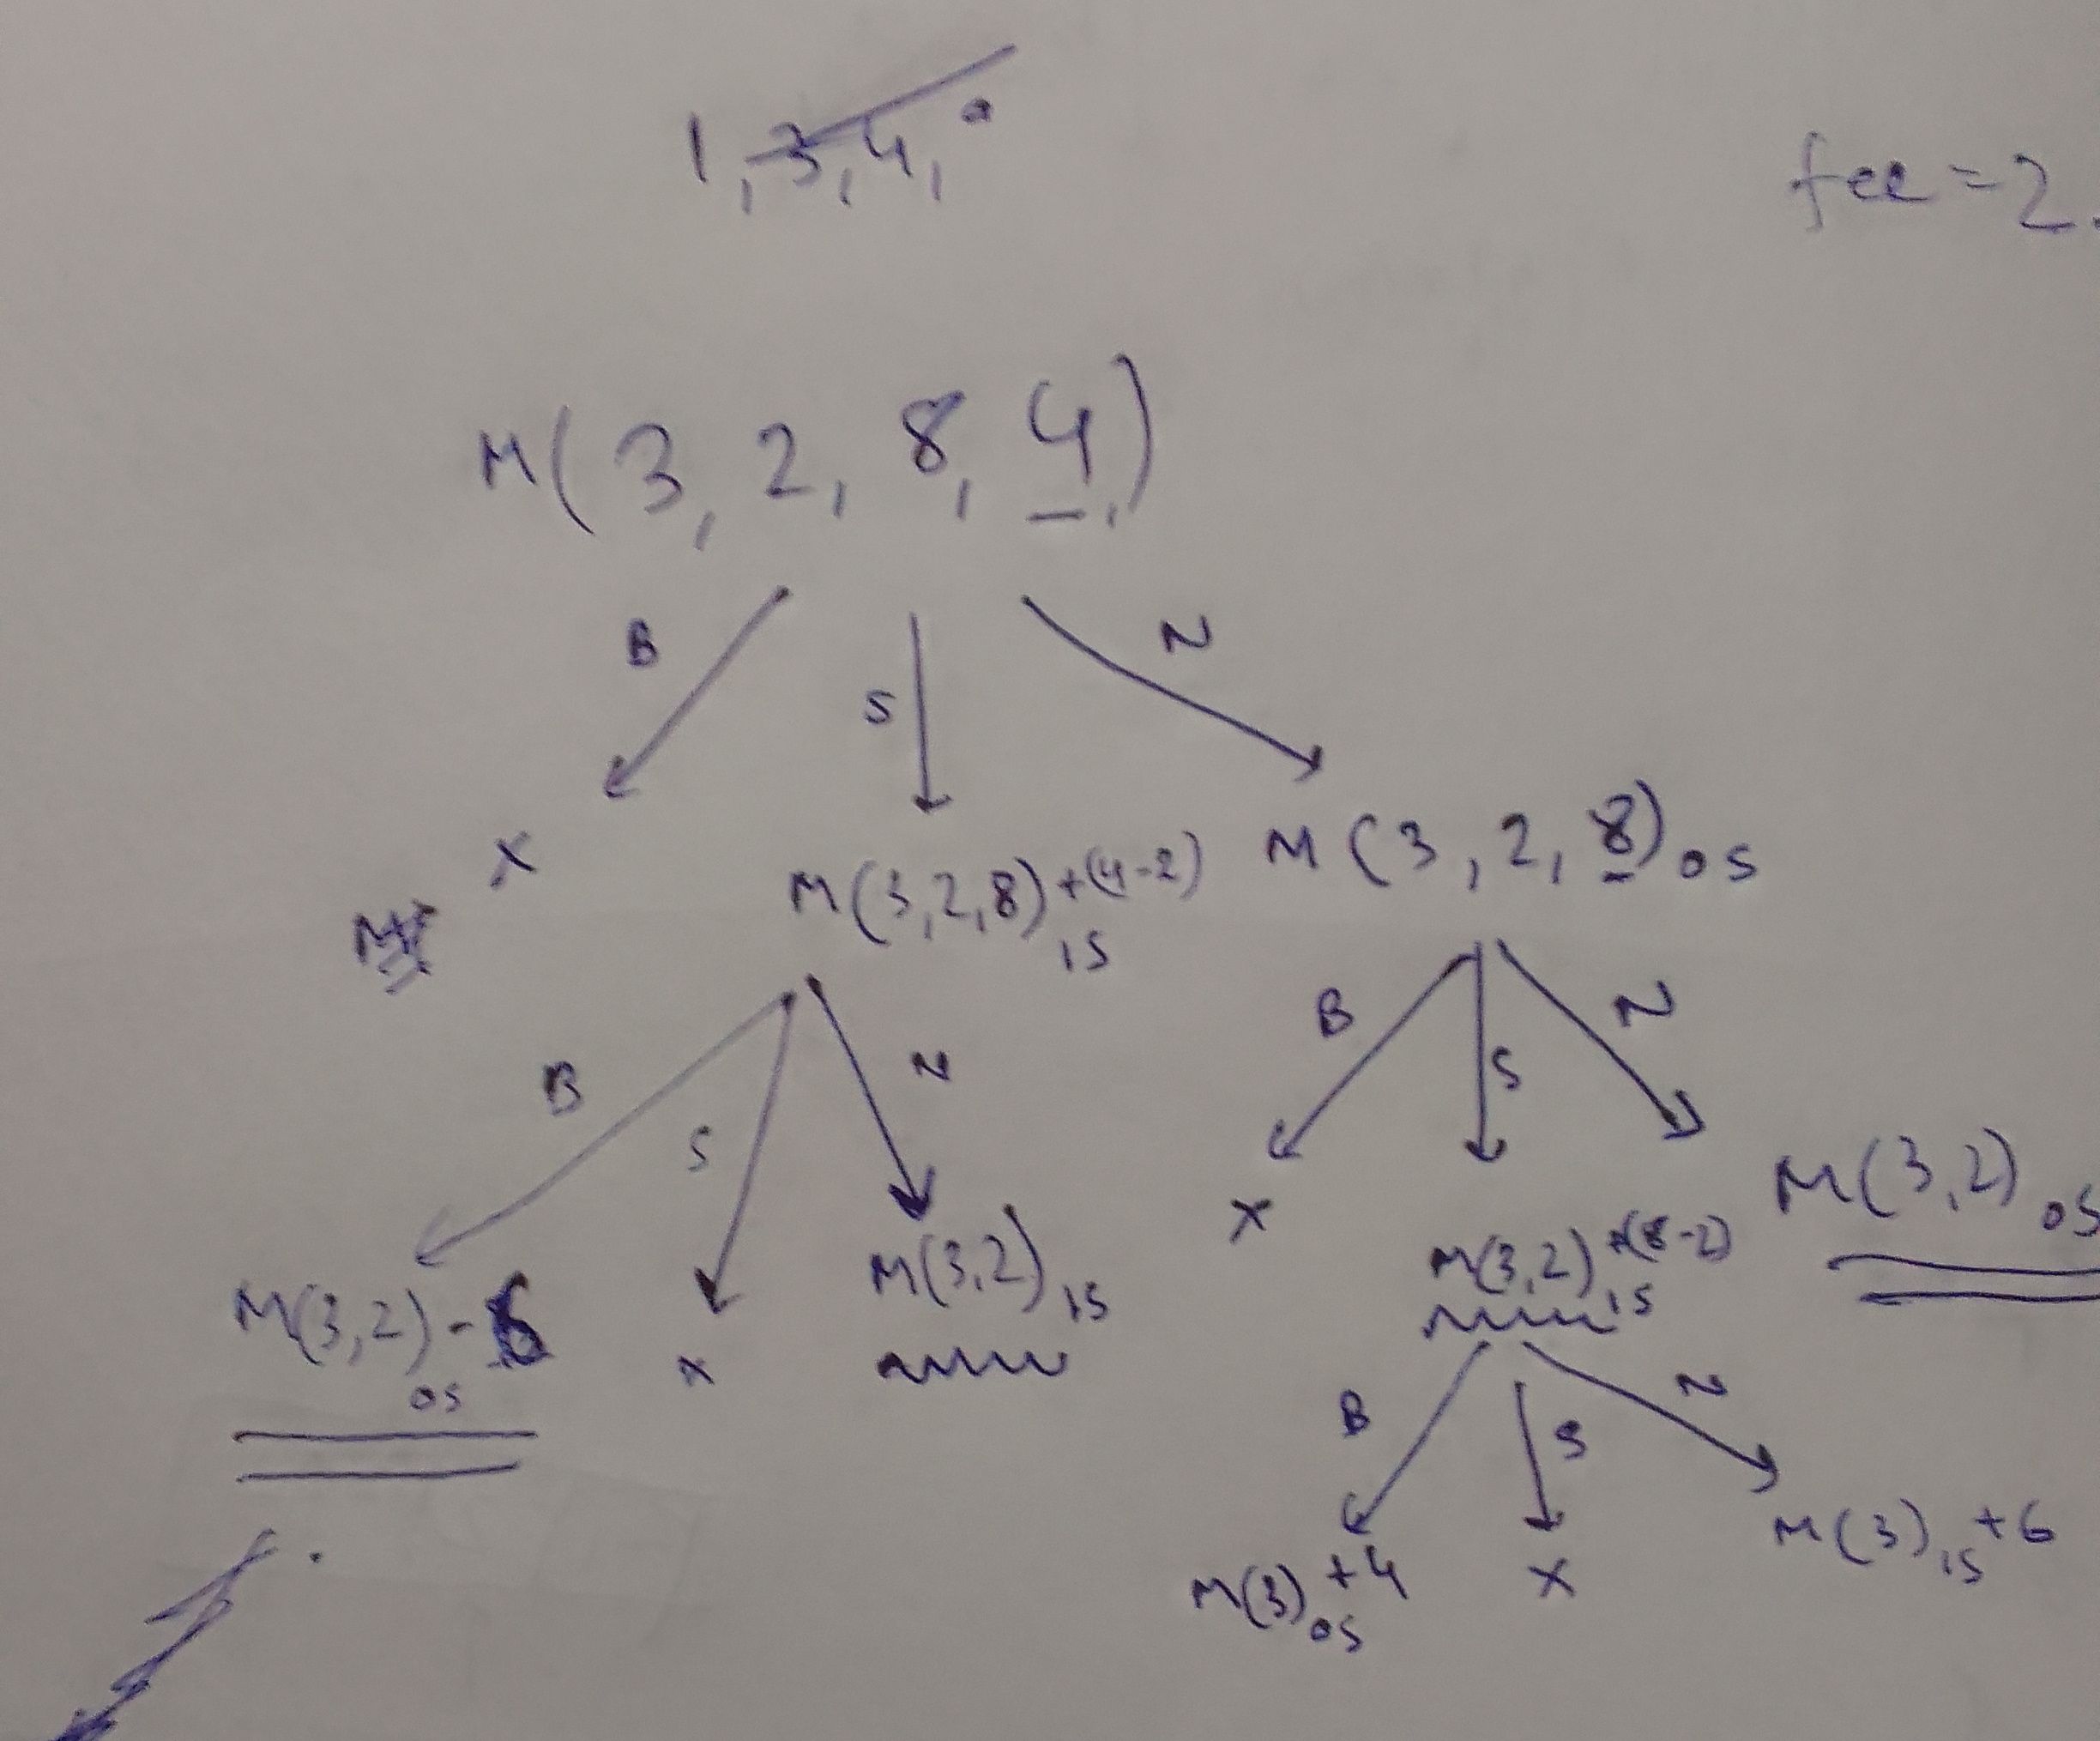 1, 3, 4,
fee = 2.
M( 3, 2, 8, 4, )
B
S
N
X
M(3,2,8) +(4-2)
1S
M (3, 2, 8) 0S
B
S
N
B
S
N
M(3,2) -6
0S
X
M(3,2) 1S
X
M(3,2) +(8-2)
1S
M(3,2) 0S
B
S
N
M(3) +4
0S
X
M(3) 1S +6